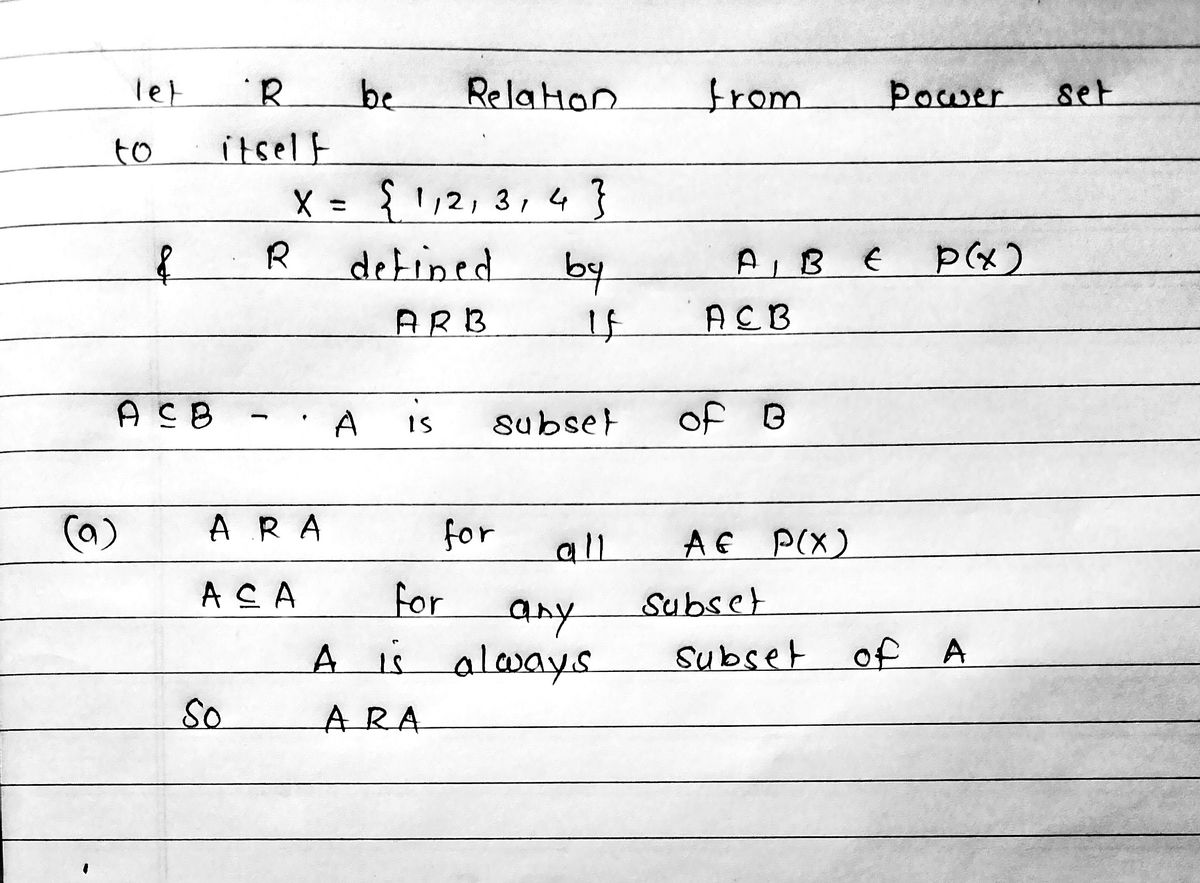 let R be Relation from Power set
to itself
X = { 1,2, 3, 4 }
& R defined by A, B ∈ P(X)
A R B If A ⊆ B
A ⊆ B - A is subset of B
(a) A R A for all A ∈ P(X)
A ⊆ A for any subset
A is always subset of A
So A R A